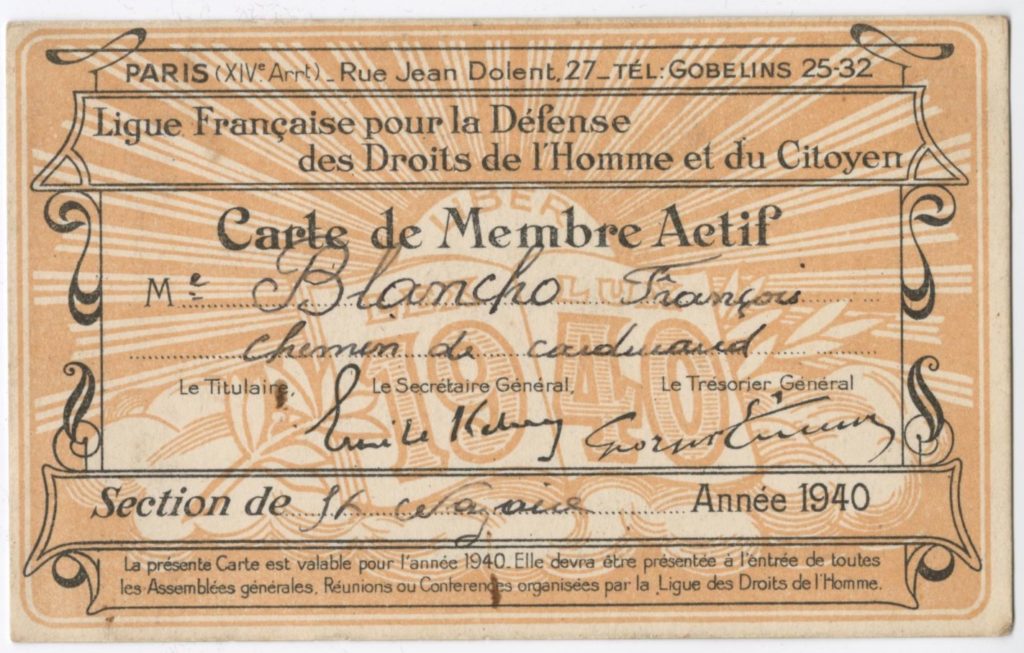 PARIS (XIVᵉ Arrt) _ Rue Jean Dolent, 27 _ TÉL: GOBELINS 25-32
Ligue Française pour la Défense
des Droits de l'Homme et du Citoyen
Carte de Membre Actif
Mᵉ Blancho François
chemin de
Le Titulaire, Le Secrétaire Général, Le Trésorier Général
Emile Kahn Georges
1940
Section de St Nazaire Année 1940
La présente Carte est valable pour l'année 1940. Elle devra être présentée à l'éntrée de toutes
les Assemblées générales, Réunions ou Conferences organisées par la Ligue des Droits de l'Homme.